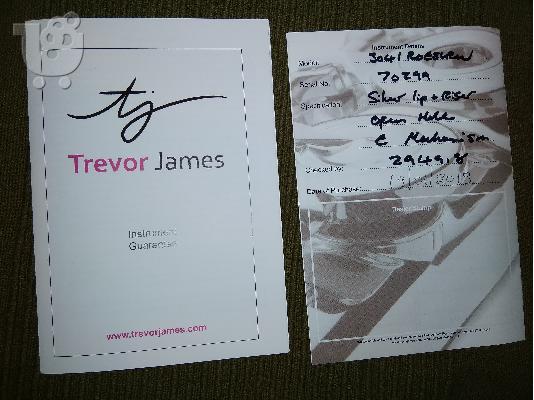 tj
Trevor James
Instrument
Guarantee
www.trevorjames.com
Instrument Details
Model:
Serial No.
70299
Specification:
Silver lip + Riser
open Hole
E Mechanism
Checked by:
29491,8
Date of Purchase:
Dealer Stamp